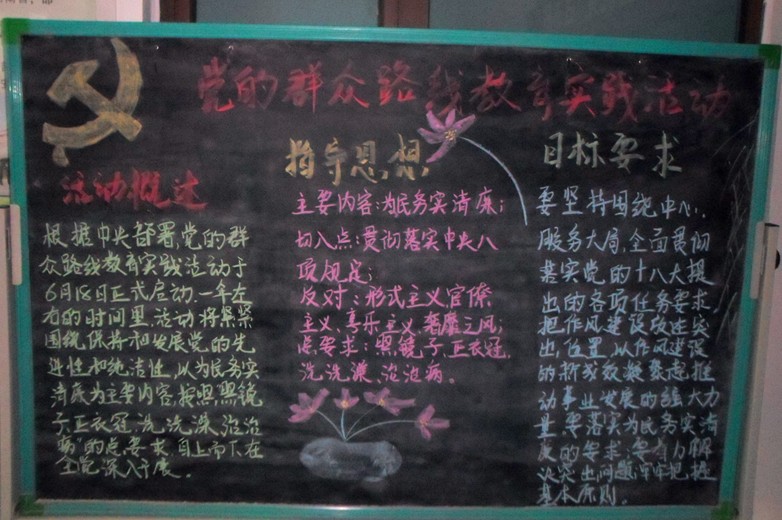 党的群众路线教育实践活动
活动概述
根据中央部署,党的群
众路线教育实践活动于
6月18日正式启动.一年左
右的时间里,活动将紧紧
围绕保持和发展党的先
进性和纯洁性,以为民务实
清廉为主要内容,按照"照镜
子、正衣冠、洗洗澡、治治
病"的总要求,自上而下在
全党深入开展。
指导思想
主要内容:为民务实清廉;
切入点:贯彻落实中央八
项规定;
反对:形式主义、官僚
主义、享乐主义、奢靡之风;
总要求:照镜子、正衣冠、
洗洗澡、治治病。
目标要求
要坚持围绕中心、
服务大局,全面贯彻
落实党的十八大提
出的各项任务要求,
把作风建设放在突
出位置,以作风建设
的新成效凝聚起推
动事业发展的强大力
量,要落实为民务实清
廉的要求;要着力解
决突出问题;牢牢把握
基本原则。